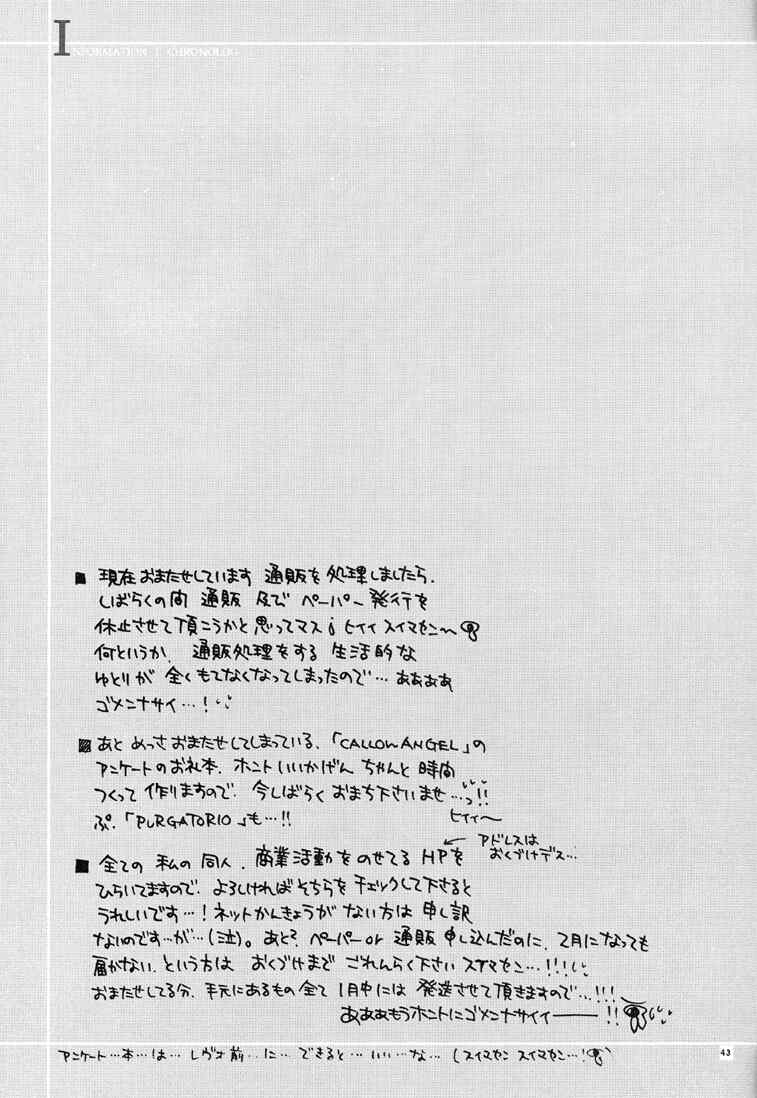 INFORMATION | CHRONOLOG
■ 現在おまたせしています 通販を処理しましたら、
しばらくの間 通販 及び ペーパー発行を
休止させて頂こうかと思ってマス¡ ヒイィ スイマセン〜
何というか、通販処理をする 生活的な
ゆとりが 全くもてなくなってしまったので…ああああ
ゴメンナサイ…!
▨ あと めっさおまたせしてしまっている、「CALLOW ANGEL」の
アンケートのお礼本、ホントいいかげん ちゃんと 時間
つくって 作りますので、今しばらく おまち下さいませ…っ!!
ヒイィ〜
ぷ、「PURGATORIO」も…!!
■ 全ての 私の 同人、商業活動をのせてる HPを
← アドレスは
おくづけデス…
ひらいてますので、よろしければそちらをチェックして下さると
うれしいです…!ネットかんきょうが ない方は 申し訳
ないのです…が…(泣)。あと、ペーパーor 通販 申し込んだのに、2月になっても
届かない、という方は おくづけまで ごれんらく下さい スイマセン…!!!
おまたせしてる分、手元にあるもの全て 1月中には 発送させて頂きますので…!!!
あああもうホントにゴメンナサイィ――!!
アンケート…本…は… レヴォ前…に… できると…いい…な… (スイマセン スイマセン…!
43